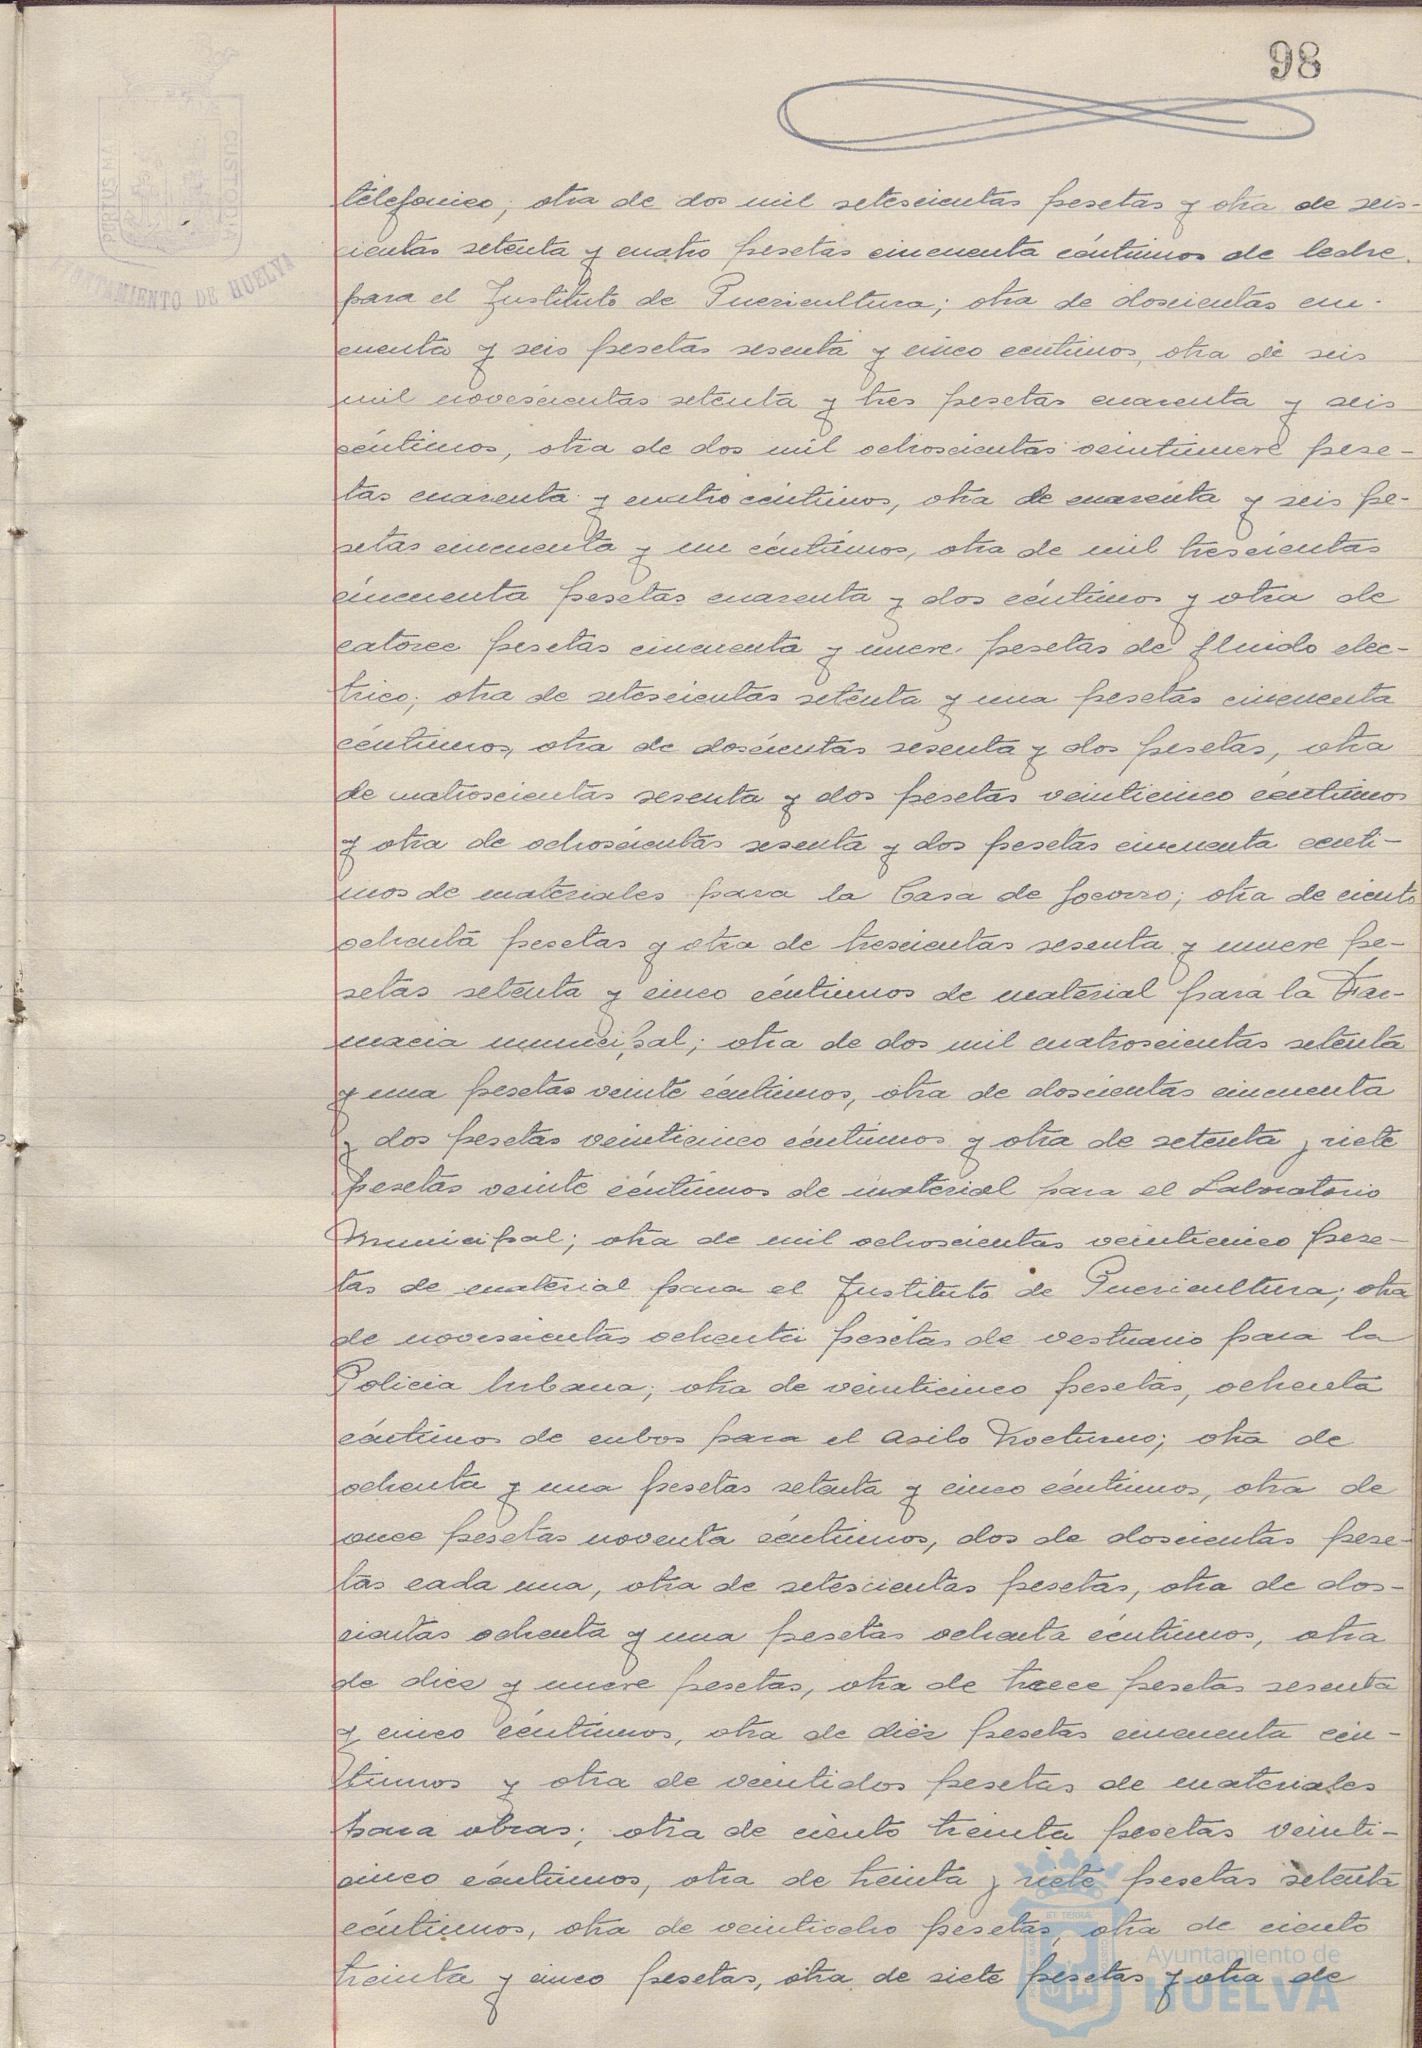 98
telefonico; otra de dos mil setescientas pesetas y otra de seis-
cientas setenta y cuatro pesetas cincuenta céntimos de leche
para el Instituto de Puericultura; otra de doscientas cin-
cuenta y seis pesetas sesenta y cinco centimos, otra de seis
mil novescientas setenta y tres pesetas cuarenta y seis
céntimos, otra de dos mil ochoscientas veintinueve pese-
tas cuarenta y cuatro céntimos, otra de cuarenta y seis pe-
setas cincuenta y un céntimos, otra de mil trescientas
cincuenta pesetas cuarenta y dos céntimos y otra de
catorce pesetas cincuenta y nueve pesetas de fluido elec-
trico; otra de setescientas setenta y una pesetas cincuenta
céntimos, otra de doscientas sesenta y dos pesetas, otra
de cuatroscientas sesenta y dos pesetas veinticinco céntimos
y otra de ochoscientas sesenta y dos pesetas cincuenta centi-
mos de materiales para la Casa de Socorro; otra de ciento
ochenta pesetas y otra de trescientas sesenta y nueve pe-
setas setenta y cinco céntimos de material para la Far-
macia municipal; otra de dos mil cuatroscientas setenta
y una pesetas veinte céntimos, otra de doscientas cincuenta
y dos pesetas veinticinco céntimos y otra de setenta y siete
pesetas veinte céntimos de material para el Laboratorio
Municipal; otra de mil ochoscientas veinticinco pese-
tas de material para el Instituto de Puericultura; otra
de novescientas ochenta pesetas de vestuario para la
Policia Urbana; otra de veinticinco pesetas, ochenta
céntimos de cubos para el Asilo Nocturno; otra de
ochenta y una pesetas setenta y cinco céntimos, otra de
once pesetas noventa céntimos, dos de doscientas pese-
tas cada una, otra de setescientas pesetas, otra de dos-
cientas ochenta y una pesetas ochenta céntimos, otra
de diez y nueve pesetas, otra de trece pesetas sesenta
y cinco céntimos, otra de diez pesetas cincuenta cén-
timos y otra de veintidos pesetas de materiales
para obras; otra de ciento treinta pesetas veinti-
cinco céntimos, otra de treinta y siete pesetas setenta
céntimos, otra de veintiocho pesetas, otra de ciento
treinta y cinco pesetas, otra de siete pesetas y otra de
PORTUS MARIS
CUSTODIA
AYUNTAMIENTO DE HUELVA
ET TERRA
Ayuntamiento de
HUELVA